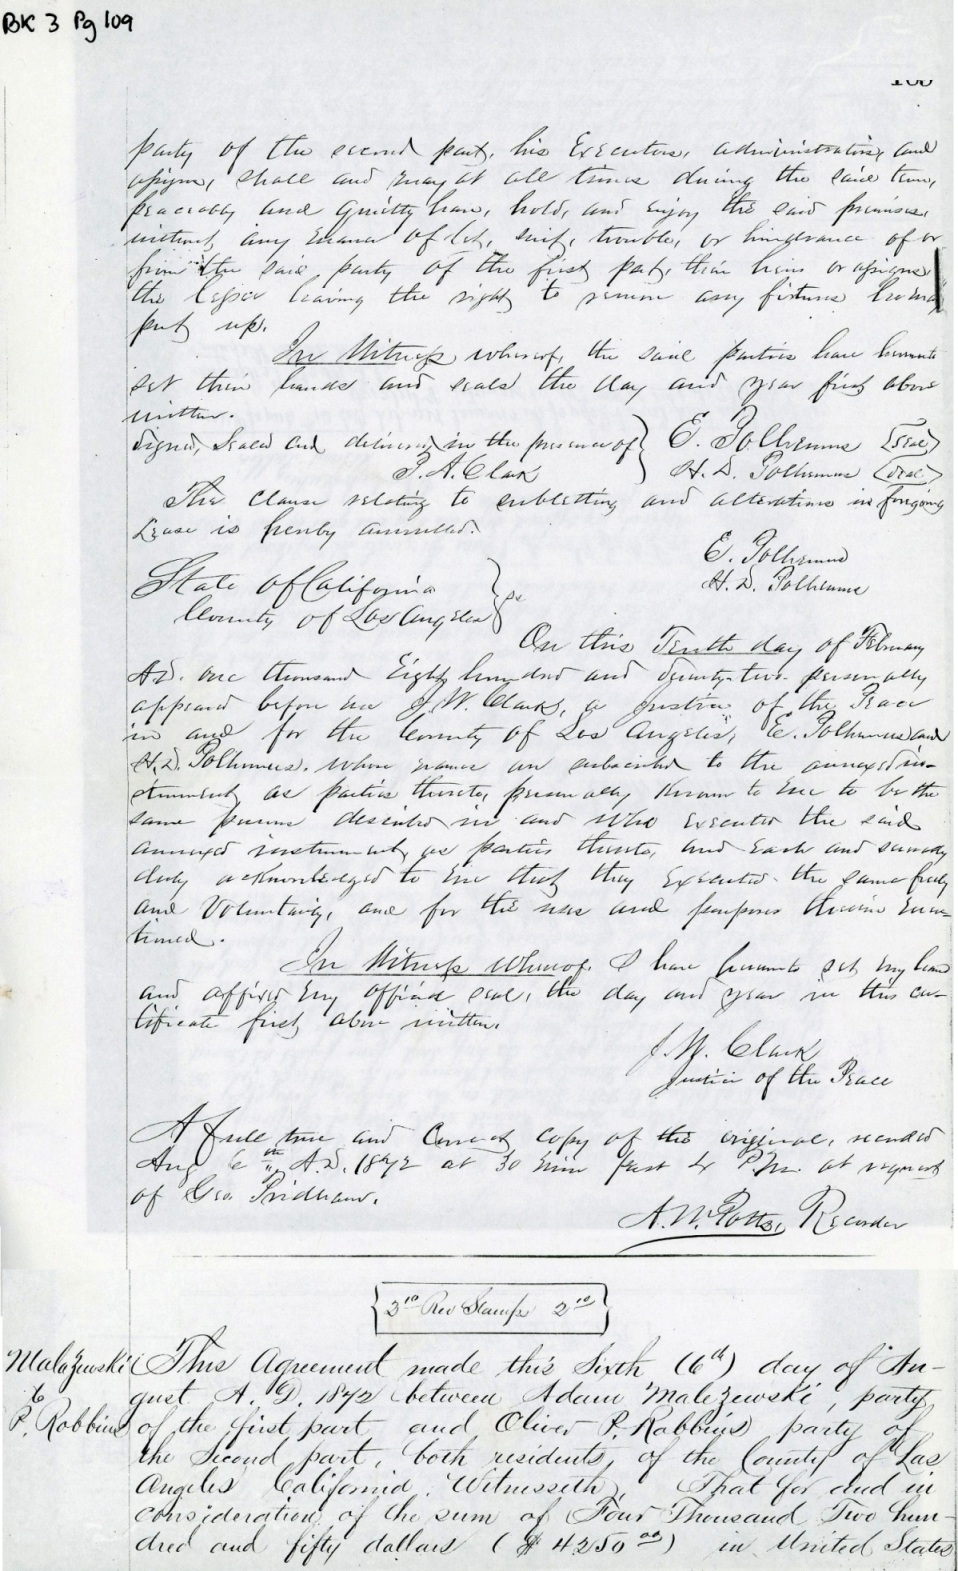 BK 3 Pg 109
party of the second part, his Executors, administrators, and
assigns, shall and may at all times during the said term,
peaceably and quietly have, hold, and enjoy the said premises,
without any manner of let, suit, trouble, or hindrance of or
from the said party of the first part, their heirs or assigns
the lessee leaving the right to remove any fixtures he may
put up.
In Witness whereof, the said parties have hereunto
set their hands and seals the day and year first above
written.
Signed, Sealed and delivered in the presence of } E. Polhemus (Seal)
J. A. Clark } H. D. Polhemus (Seal)
The clause relating to subletting and alterations in foregoing
Lease is hereby annulled.
E. Polhemus
H. D. Polhemus
State of California
County of Los Angeles } ss
On this Tenth day of February
A.D. one thousand Eight hundred and seventy-two personally
appeared before me J. W. Clark, a Justice of the Peace
in and for the County of Los Angeles, E. Polhemus and
H. D. Polhemus, whose names are subscribed to the annexed in-
strument, as parties thereto, personally known to me to be the
same persons described in and who executed the said
annexed instrument, as parties thereto, and Each and severally
duly acknowledged to me that they Executed the same freely
and Voluntarily, and for the uses and purposes therein men-
tioned.
In Witness whereof, I have hereunto set my hand
and affixed my official seal, the day and year in this cer-
tificate first above written.
J. W. Clark
Justice of the Peace
A full true and Correct copy of the original, recorded
Aug 6th A.D. 1872 at 30 min past 4 P.M. at request
of Geo. Pridham.
A. W. Potts, Recorder
Rev Stamps
Malazewski This Agreement made this Sixth (6th) day of Au-
& gust A. D. 1872 between Adam Malezewski, party
P. Robbins of the first part and Oliver P. Robbins party of
the Second part, both residents, of the County of Los
Angeles California, Witnesseth, That for and in
consideration of the sum of Four Thousand Two hun-
dred and fifty dollars ($4250 00) in United States